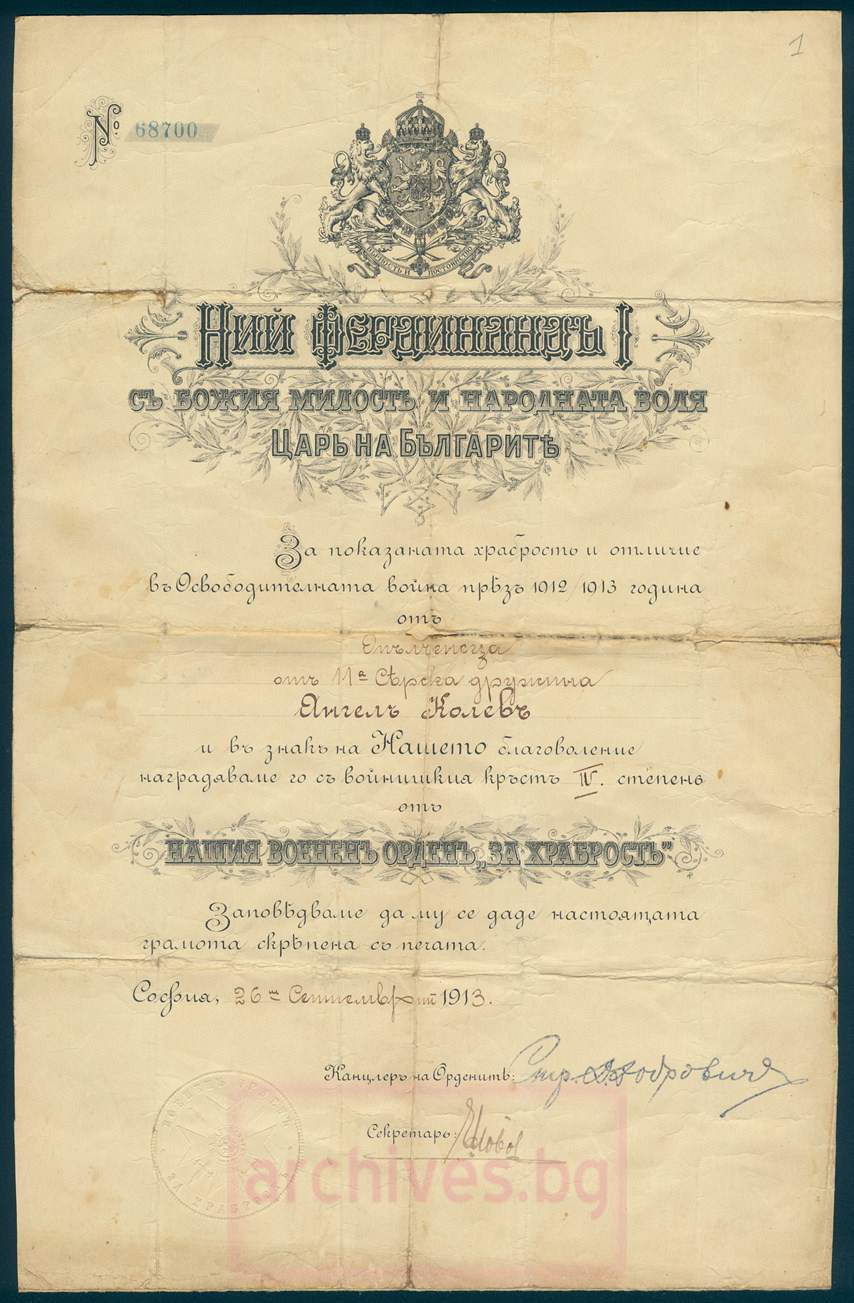 1
№ 68700
ВѢРНОСТЬ И ПОСТОЯНСТВО
Ний Фердинандъ I
съ Божия милость и народната воля
Царь на Българитѣ
За показаната храбрость и отличие
въ Освободителната война прѣзъ 1912/1913 година
отъ
Опълченеца
отъ 11а Сѣрска дружина
Ангелъ Колевъ
и въ знакъ на Нашето благоволение
наградяваме го съ войнишкия кръстъ IV. степень
отъ
нашия военен орденъ „За храбрость"
Заповѣдваме да му се даде настоящата
грамота скрѣпена съ печата.
София, 26 Септемврий 1913.
Канцлеръ на Орденитѣ: Стр. Добровичъ
Секретарь:
ЗА ХРАБРОСТЬ
archives.bg